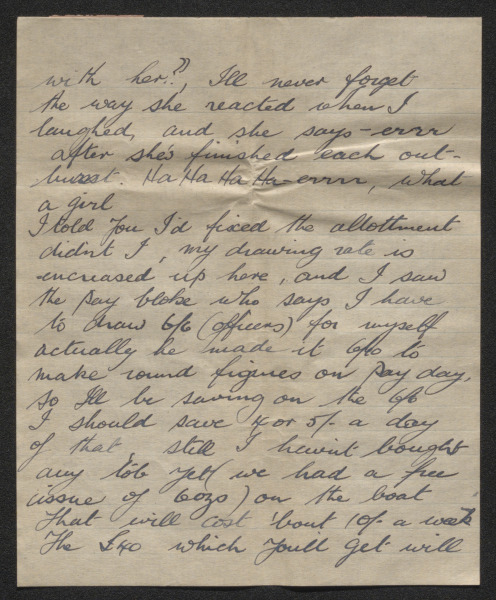 with her?", I'll never forget
the way she reacted when I
laughed, and she says - errr
after she's finished each out-
burst. Ha Ha Ha Ha - errrr, what
a girl
I told you I'd fixed the allottment
didn't I, my drawing rate is
encreased up here, and I saw
the pay bloke who says I have
to draw 6/6 (officers) for myself
actually he made it 6/8 to
make round figures on pay day,
so I'll be saving on the 6/6
I should save 4 or 5/- a day
of that still I havint bought
any tob yet (we had a free
issue of 60zs) on the boat
that will cost 'bout 10/- a week
The £40 which you'll get will